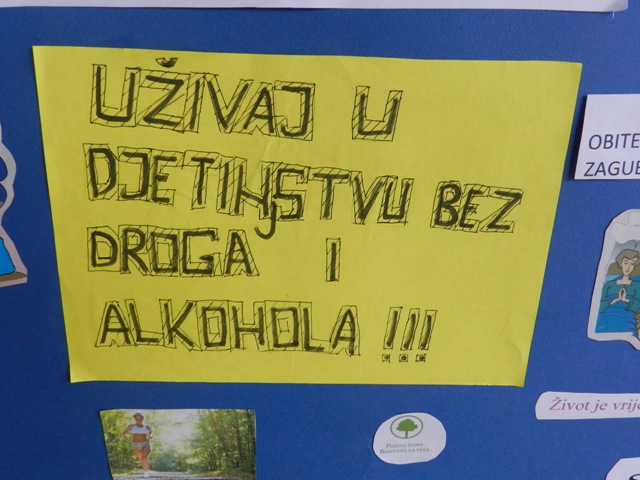 UŽIVAJ U
DJETINJSTVU BEZ
DROGA I
ALKOHOLA !!!
OBITE
ZAGUE
Život je vrije